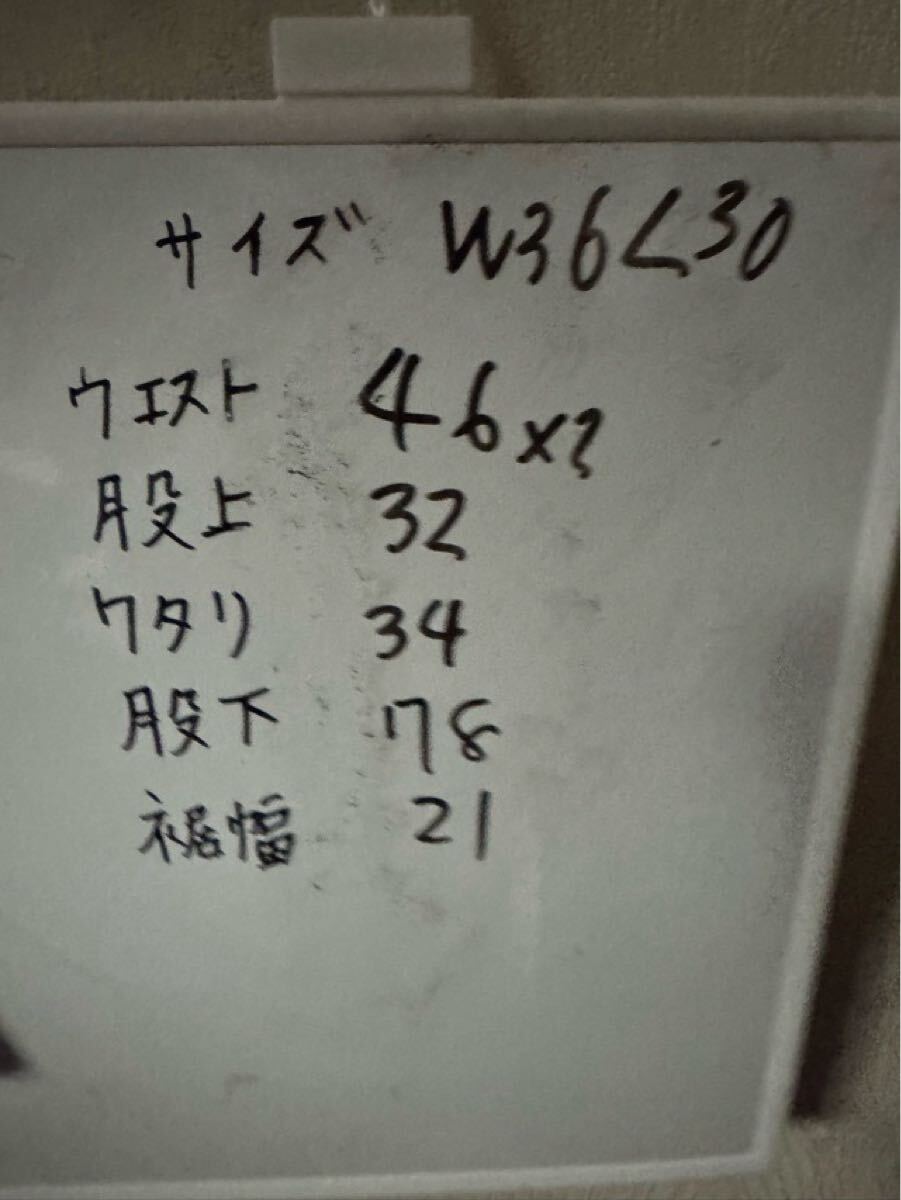 サイズ W36L30
ウエスト 46x2
股上 32
ワタリ 34
股下 78
裾幅 21